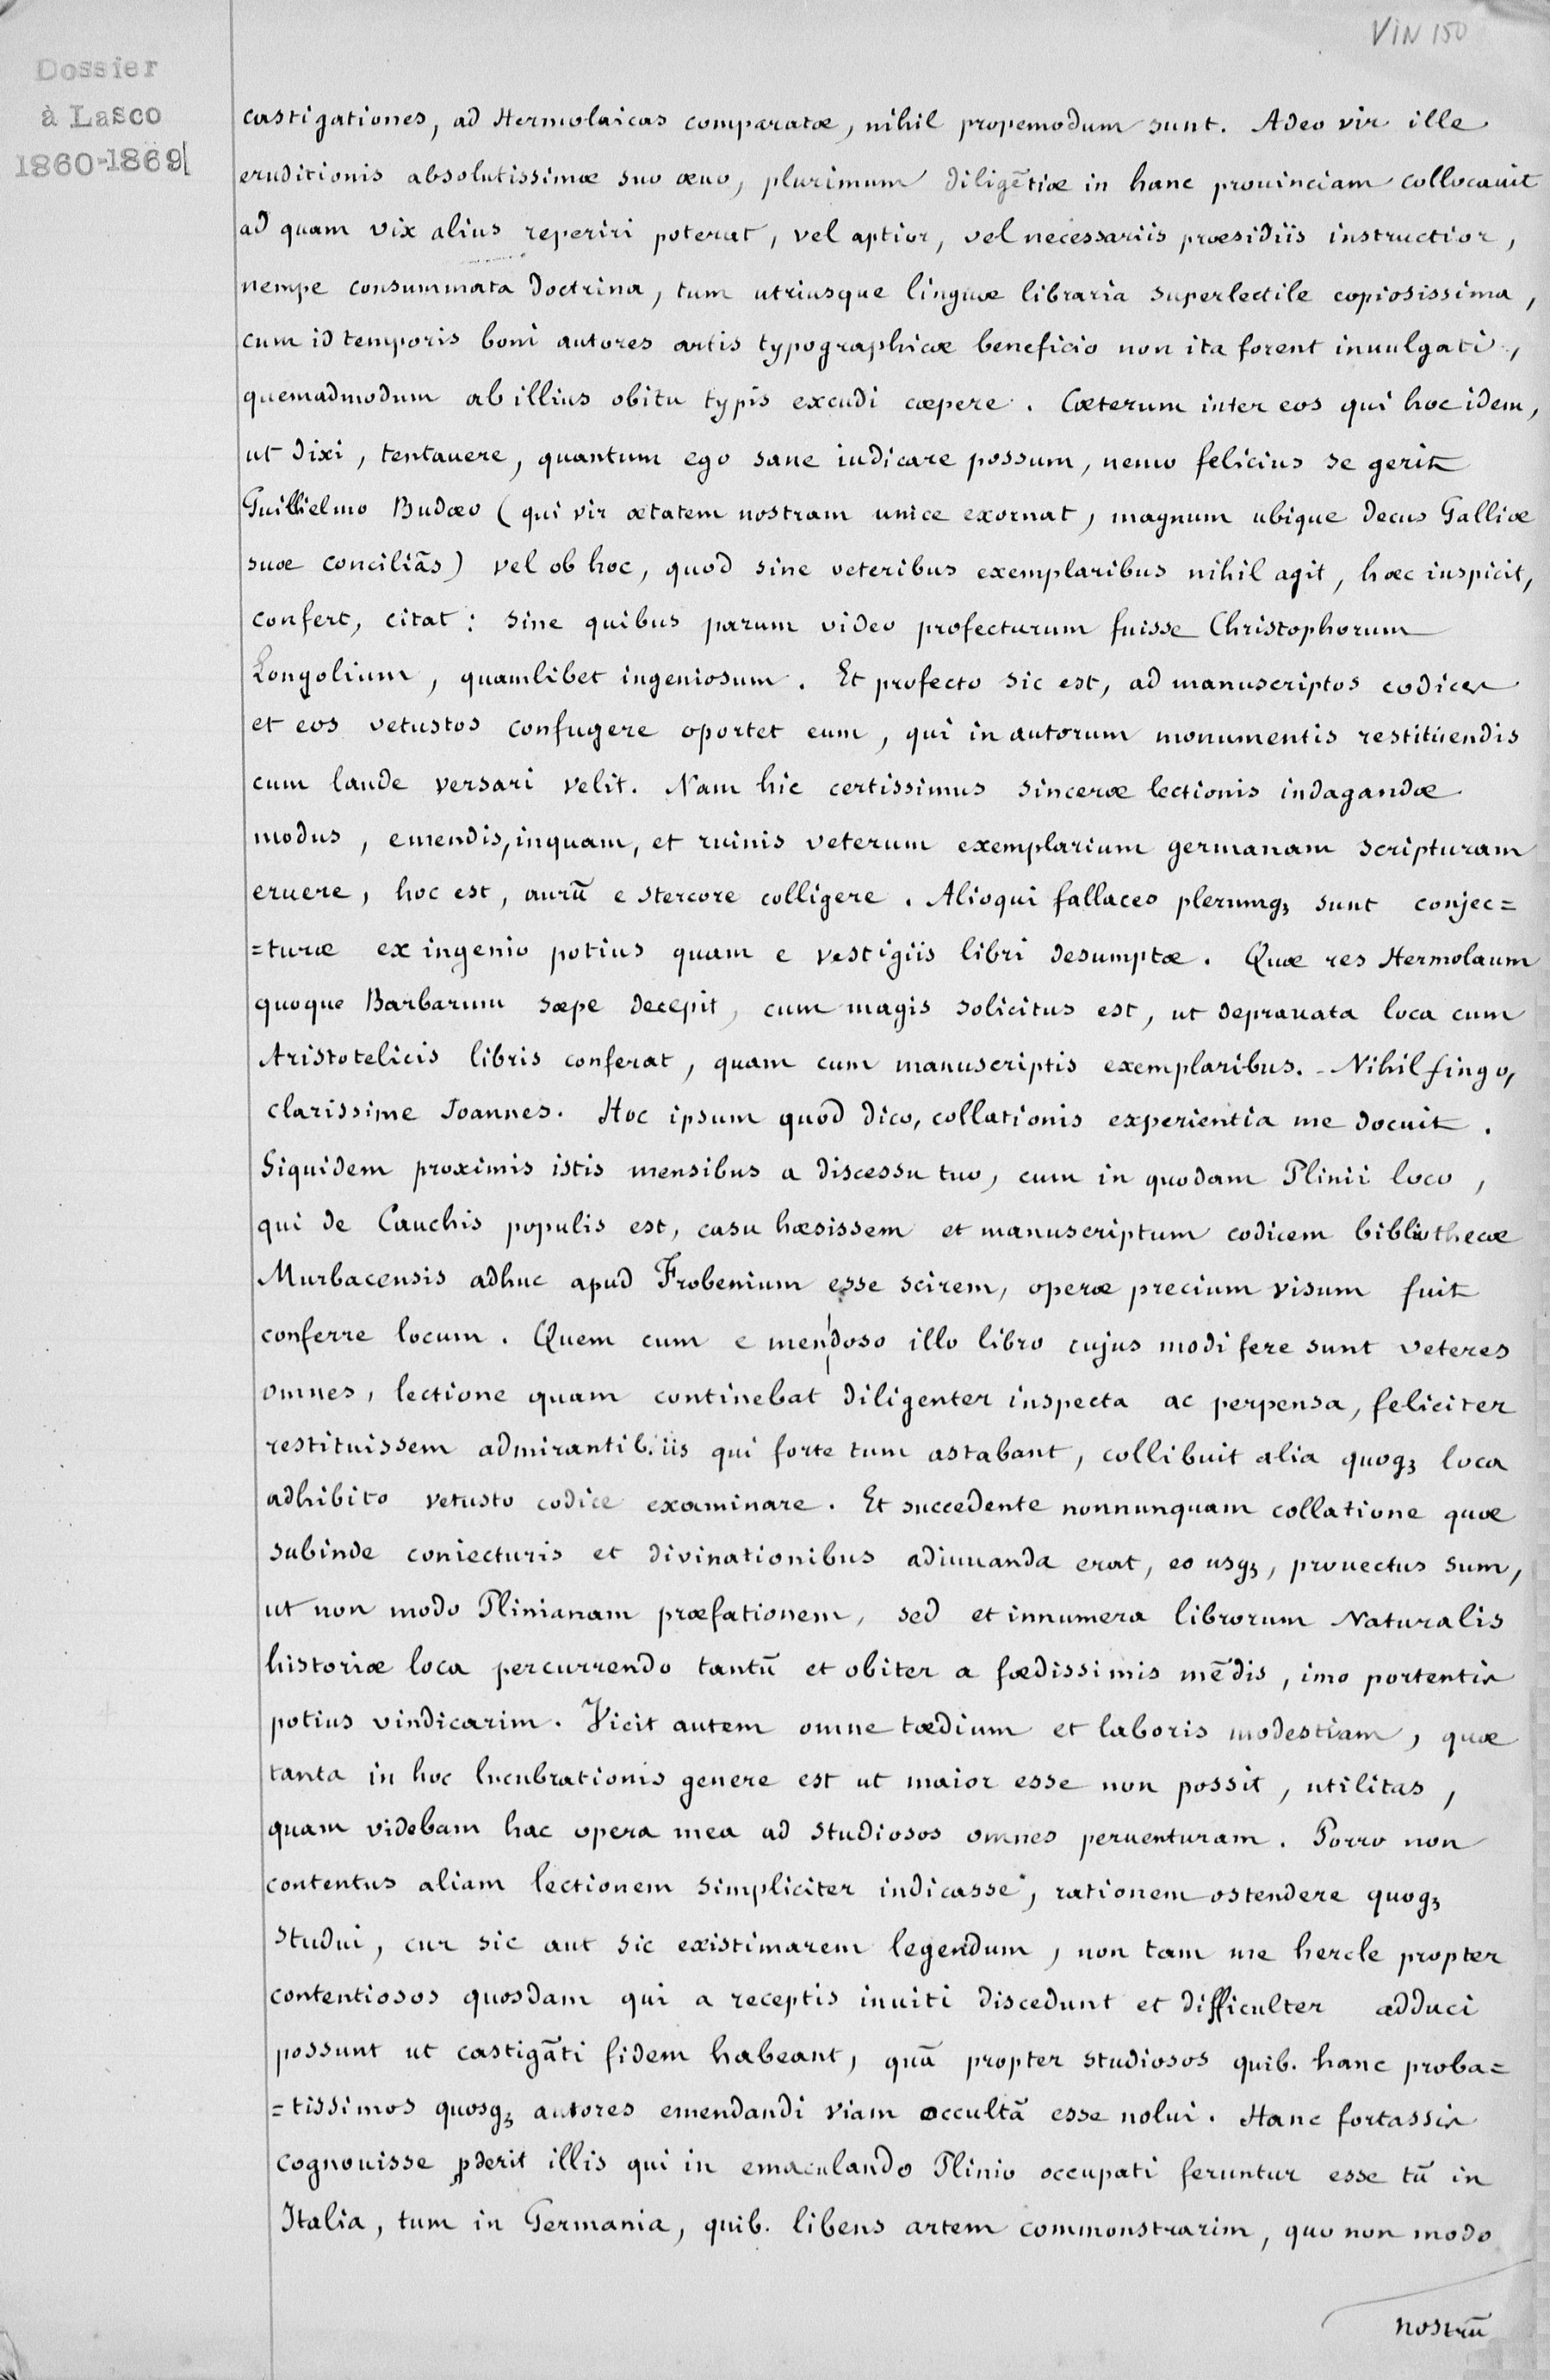 VIN 150
Dossier
à Lasco
1860-1869
castigationes, ad Hermolaicas comparatæ, nihil propemodum sunt. Adeo vir ille
eruditionis absolutissimæ suo æuo, plurimum diligẽtiæ in hanc prouinciam collocauit
ad quam vix alius reperiri poterat, vel aptior, vel necessariis præsidiis instructior,
nempe consummata doctrina, tum utriusque linguæ libraria superlectile copiosissima,
cum id temporis boni autores artis typographicæ beneficio non ita forent inuulgati,
quemadmodum ab illius obitu typis excudi cæpere. Cæterum inter eos qui hoc idem,
ut dixi, tentauere, quantum ego sane iudicare possum, nemo felicius se gerit
Guillielmo Budæo (qui vir ætatem nostram unice exornat, magnum ubique decus Galliæ
suæ conciliãs) vel ob hoc, quod sine veteribus exemplaribus nihil agit, hæc inspicit,
confert, citat: sine quibus parum video profecturum fuisse Christophorum
Longolium, quamlibet ingeniosum. Et profecto sic est, ad manuscriptos codices
et eos vetustos confugere oportet eum, qui in autorum monumentis restituendis
cum laude versari velit. Nam hic certissimus sinceræ lectionis indagandæ
modus, e mendis, inquam, et ruinis veterum exemplarium germanam scripturam
eruere, hoc est, aurũ e stercore colligere. Alioqui fallaces plerumqꝫ sunt conjec=
=turæ ex ingenio potius quam e vestigiis libri desumptæ. Quæ res Hermolaum
quoque Barbarum sæpe decepit, cum magis solicitus est, ut deprauata loca cum
Aristotelicis libris conferat, quam cum manuscriptis exemplaribus. - Nihil fingo,
clarissime Joannes. Hoc ipsum quod dico, collationis experientia me docuit.
Siquidem proximis istis mensibus a discessu tuo, cum in quodam Plinii loco,
qui de Cauchis populis est, casu hæsissem et manuscriptum codicem bibliothecæ
Murbacensis adhuc apud Frobenium esse scirem, operæ precium visum fuit
conferre locum. Quem cum e mendoso illo libro cujus modi fere sunt veteres
omnes, lectione quam continebat diligenter inspecta ac perpensa, feliciter
restituissem admirantib. iis qui forte tum astabant, collibuit alia quoqꝫ loca
adhibito vetusto codice examinare. Et succedente nonnunquam collatione quæ
subinde coniecturis et divinationibus adiuuanda erat, eo usqꝫ, prouectus sum,
ut non modo Plinianam præfationem, sed et innumera librorum Naturalis
historiæ loca percurrendo tantũ et obiter a fœdissimis mẽdis, imo portentis
potius vindicarim. Vicit autem omne tædium et laboris modestiam, quæ
tanta in hoc lucubrationis genere est ut maior esse non possit, utilitas,
quam videbam hac opera mea ad studiosos omnes peruenturam. Porro non
contentus aliam lectionem simpliciter indicasse, rationem ostendere quoqꝫ
studui, cur sic aut sic existimarem legendum, non tam me hercle propter
contentiosos quosdam qui a receptis inuiti discedunt et difficulter adduci
possunt ut castigãti fidem habeant, quã propter studiosos quib. hanc proba=
=tissimos quosqꝫ autores emendandi viam occultã esse nolui. Hanc fortassis
cognouisse ꝓderit illis qui in emaculando Plinio occupati feruntur esse tũ in
Italia, tum in Germania, quib. libens artem commonstrarim, quo non modo
nostrũ